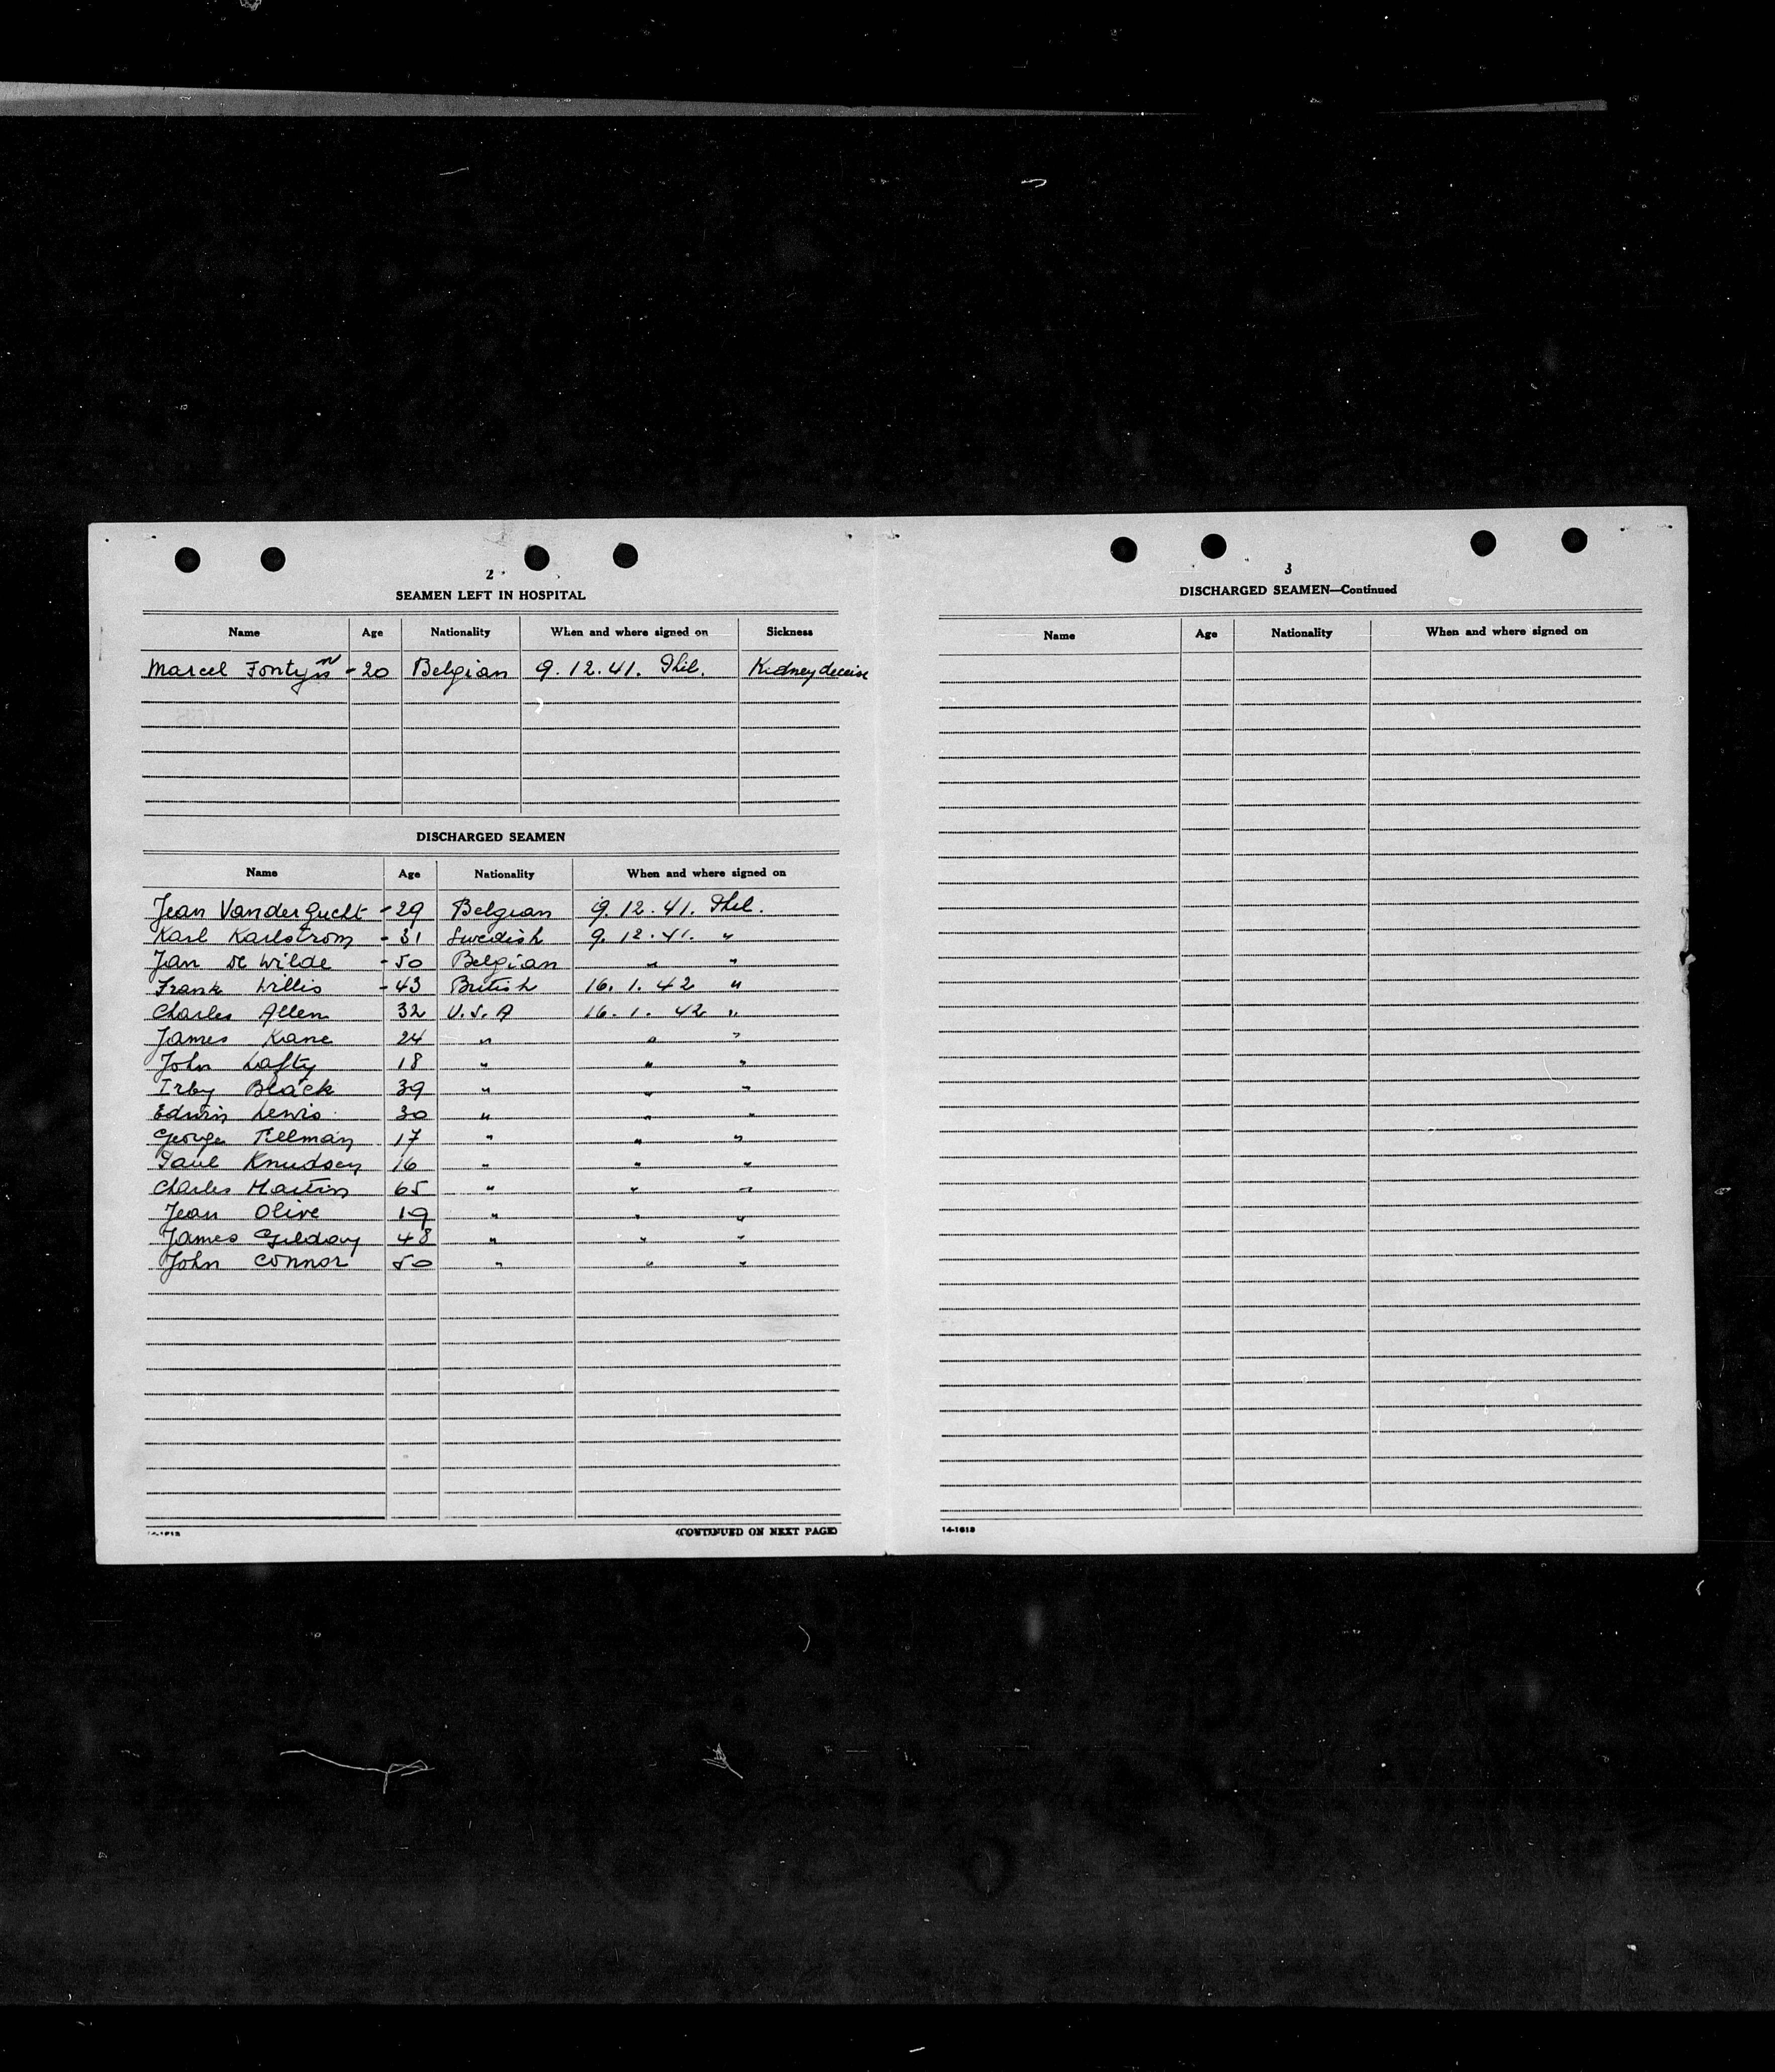 2
SEAMEN LEFT IN HOSPITAL
Name Age Nationality When and where signed on Sickness
Marcel Fontyn - 20 Belgian 9.12.41. Phil. Kidney deceise
DISCHARGED SEAMEN
Name Age Nationality When and where signed on
Jean Vandergucht - 29 Belgian 9.12.41. Phil.
Karl Karlstrom - 31 Swedish 9.12.41. "
Jan de Wilde - 50 Belgian " "
Frank Willis - 43 British 16.1.42 "
Charles Allen 32 U.S.A 16.1.42 "
James Kane 24 " " "
John Lafty 18 " " "
Irby Black 39 " " "
Edwin Lewis 30 " " "
George Tillman 17 " " "
Paul Knudsen 16 " " "
Charles Martin 65 " " "
Jean Olive 19 " " "
James Gilday 48 " " "
John Connor 50 " " "
(CONTINUED ON NEXT PAGE)
3
DISCHARGED SEAMEN—Continued
Name Age Nationality When and where signed on
14-1613